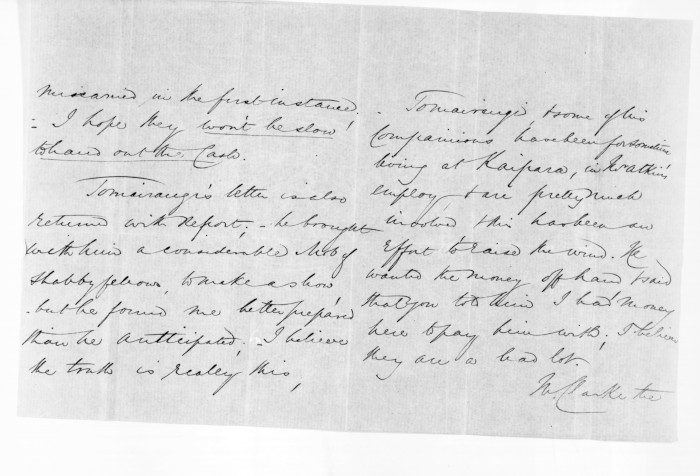 miscarried, in the first instance!
- I hope they won't be slow
to hand out the Cash.
Tomairangi's letter is also
returned with Report, - he brought
with him a considerable Mob of
shabby fellows, to make a show
- but he found me better prepared
than he anticipated, - I believe
the truth is really this,
- Tomairangi & some of his
Companions have been for sometime
living at Kaipara, in
employ & are pretty much
involved & this has been an
Effort to raise the wind. He
wanted the money off hand & said
that you told him I had money
here to pay him with, I believe
they are a bad lot.
Mr. Clarke the